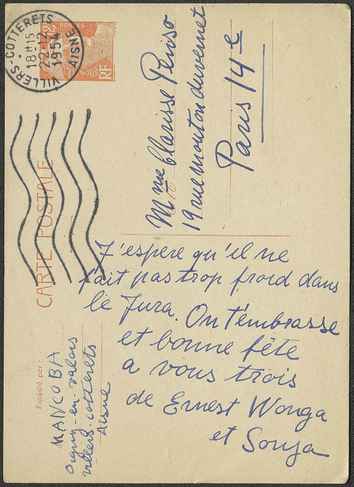 VILLERS-COTTERETS
18H15
22-12
1954
AISNE
RF
CARTE POSTALE
Mme Clarisse Penso
19 rue mouton duvernet
Paris 14e
J'espère qu'il ne
fait pas trop froid dans
le Jura. On t'embrasse
et bonne fête
a vous trois
de Ernest Wonga
et Sonja
Envoyé par:
MANCOBA
Oigny-en-valois
villers-cotterets
Aisne